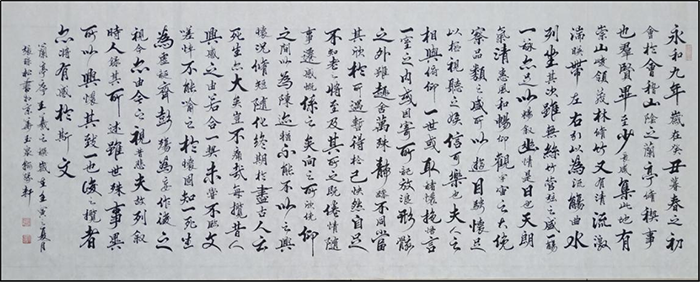 永和九年歲在癸丑暮春之初
會於會稽山陰之蘭亭修禊事
也群賢畢至少長咸集此地有
崇山峻領茂林修竹又有清流激
湍映帶左右引以為流觴曲水
列坐其次雖無絲竹管弦之盛一觴
一詠亦足以暢敘幽情是日也天朗
氣清惠風和暢仰觀宇宙之大俯
察品類之盛所以遊目騁懷足
以極視聽之娛信可樂也夫人之
相與俯仰一世或取諸懷抱悟言
一室之內或因寄所託放浪形骸
之外雖趣舍萬殊靜躁不同當
其欣於所遇暫得於己快然自足
不知老將至及其所之既倦情隨
事遷感慨係之矣向之所欣俛仰
之間以為陳迹猶不能不以之興
懷況脩短隨化終期於盡古人云
死生亦大矣豈不痛哉每攬昔人
興感之由若合一契未嘗不臨文
嗟悼不能喻之於懷固知一死生
為虛誕齊彭殤為妄作後之
視今亦由今之視昔悲夫故列敘
時人錄其所述雖世殊事異
所以興懷其致一也後之攬者
亦將有感於斯文
蘭亭序王羲之歲在壬寅之夏月
松書於京華軒